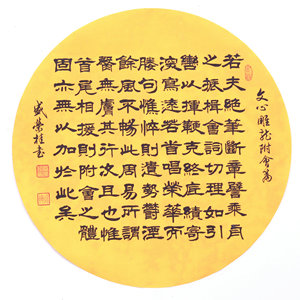 文心雕龍附會篇
若夫絕筆斷章譬乘舟
之振楫會詞切理如引
轡以揮鞭克終底績寄
深寫遠若首唱榮華而
媵句憔悴則遺勢鬱湮
餘風不暢此周易所謂
臀無膚其行次且也惟
首尾相援則附會之體
固亦無以加於此矣